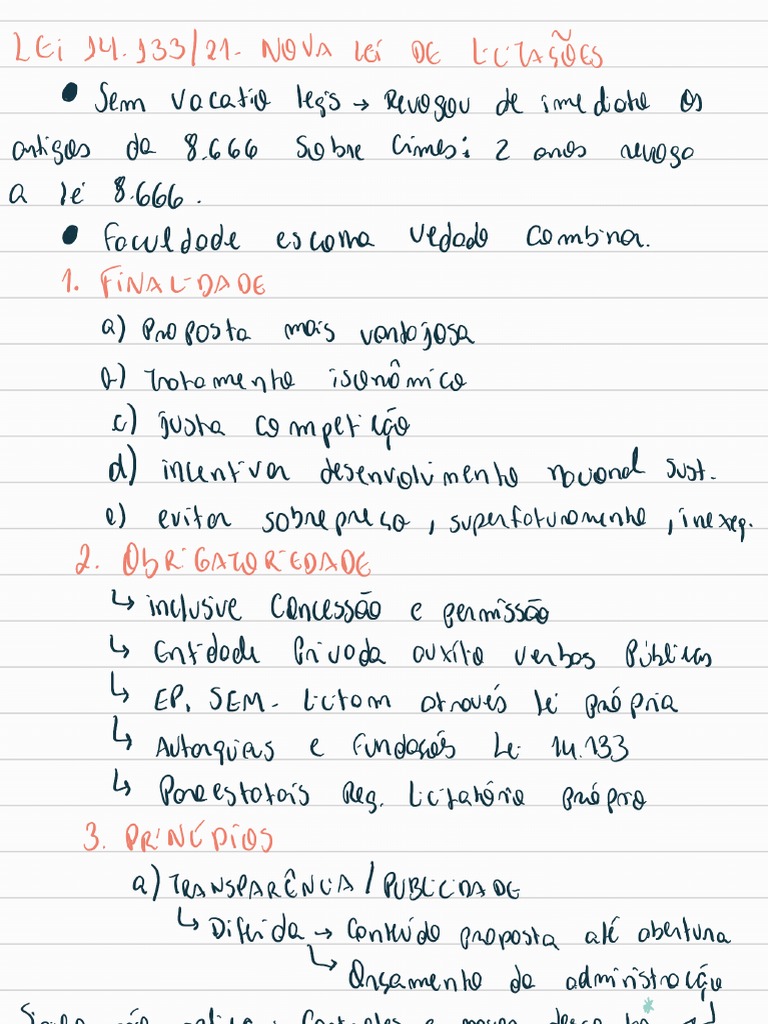 LEI 14.133/21 - NOVA LEI DE LICITAÇÕES
• Sem vacatio legis → Revogou de imediato os
artigos da 8.666 sobre crimes: 2 anos revoga
a lei 8.666.
• Faculdade escolha vedado combinar.
1. FINALIDADE
a) Proposta mais vantajosa
b) Tratamento isonômico
c) justa competição
d) incentivar desenvolvimento nacional sust.
e) evitar sobrepreço, superfaturamento, inexeq.
2. OBRIGATORIEDADE
↳ inclusive concessão e permissão
↳ Entidade Privada auxílio verbas Públicas
↳ EP, SEM - licitam através lei própria
↳ Autarquias e Fundações Lei 14.133
↳ Paraestatais Reg. licitatório próprio
3. PRINCÍPIOS
a) TRANSPARÊNCIA / PUBLICIDADE
↳ Diferida → Conteúdo proposta até abertura
↳ Orçamento da administração